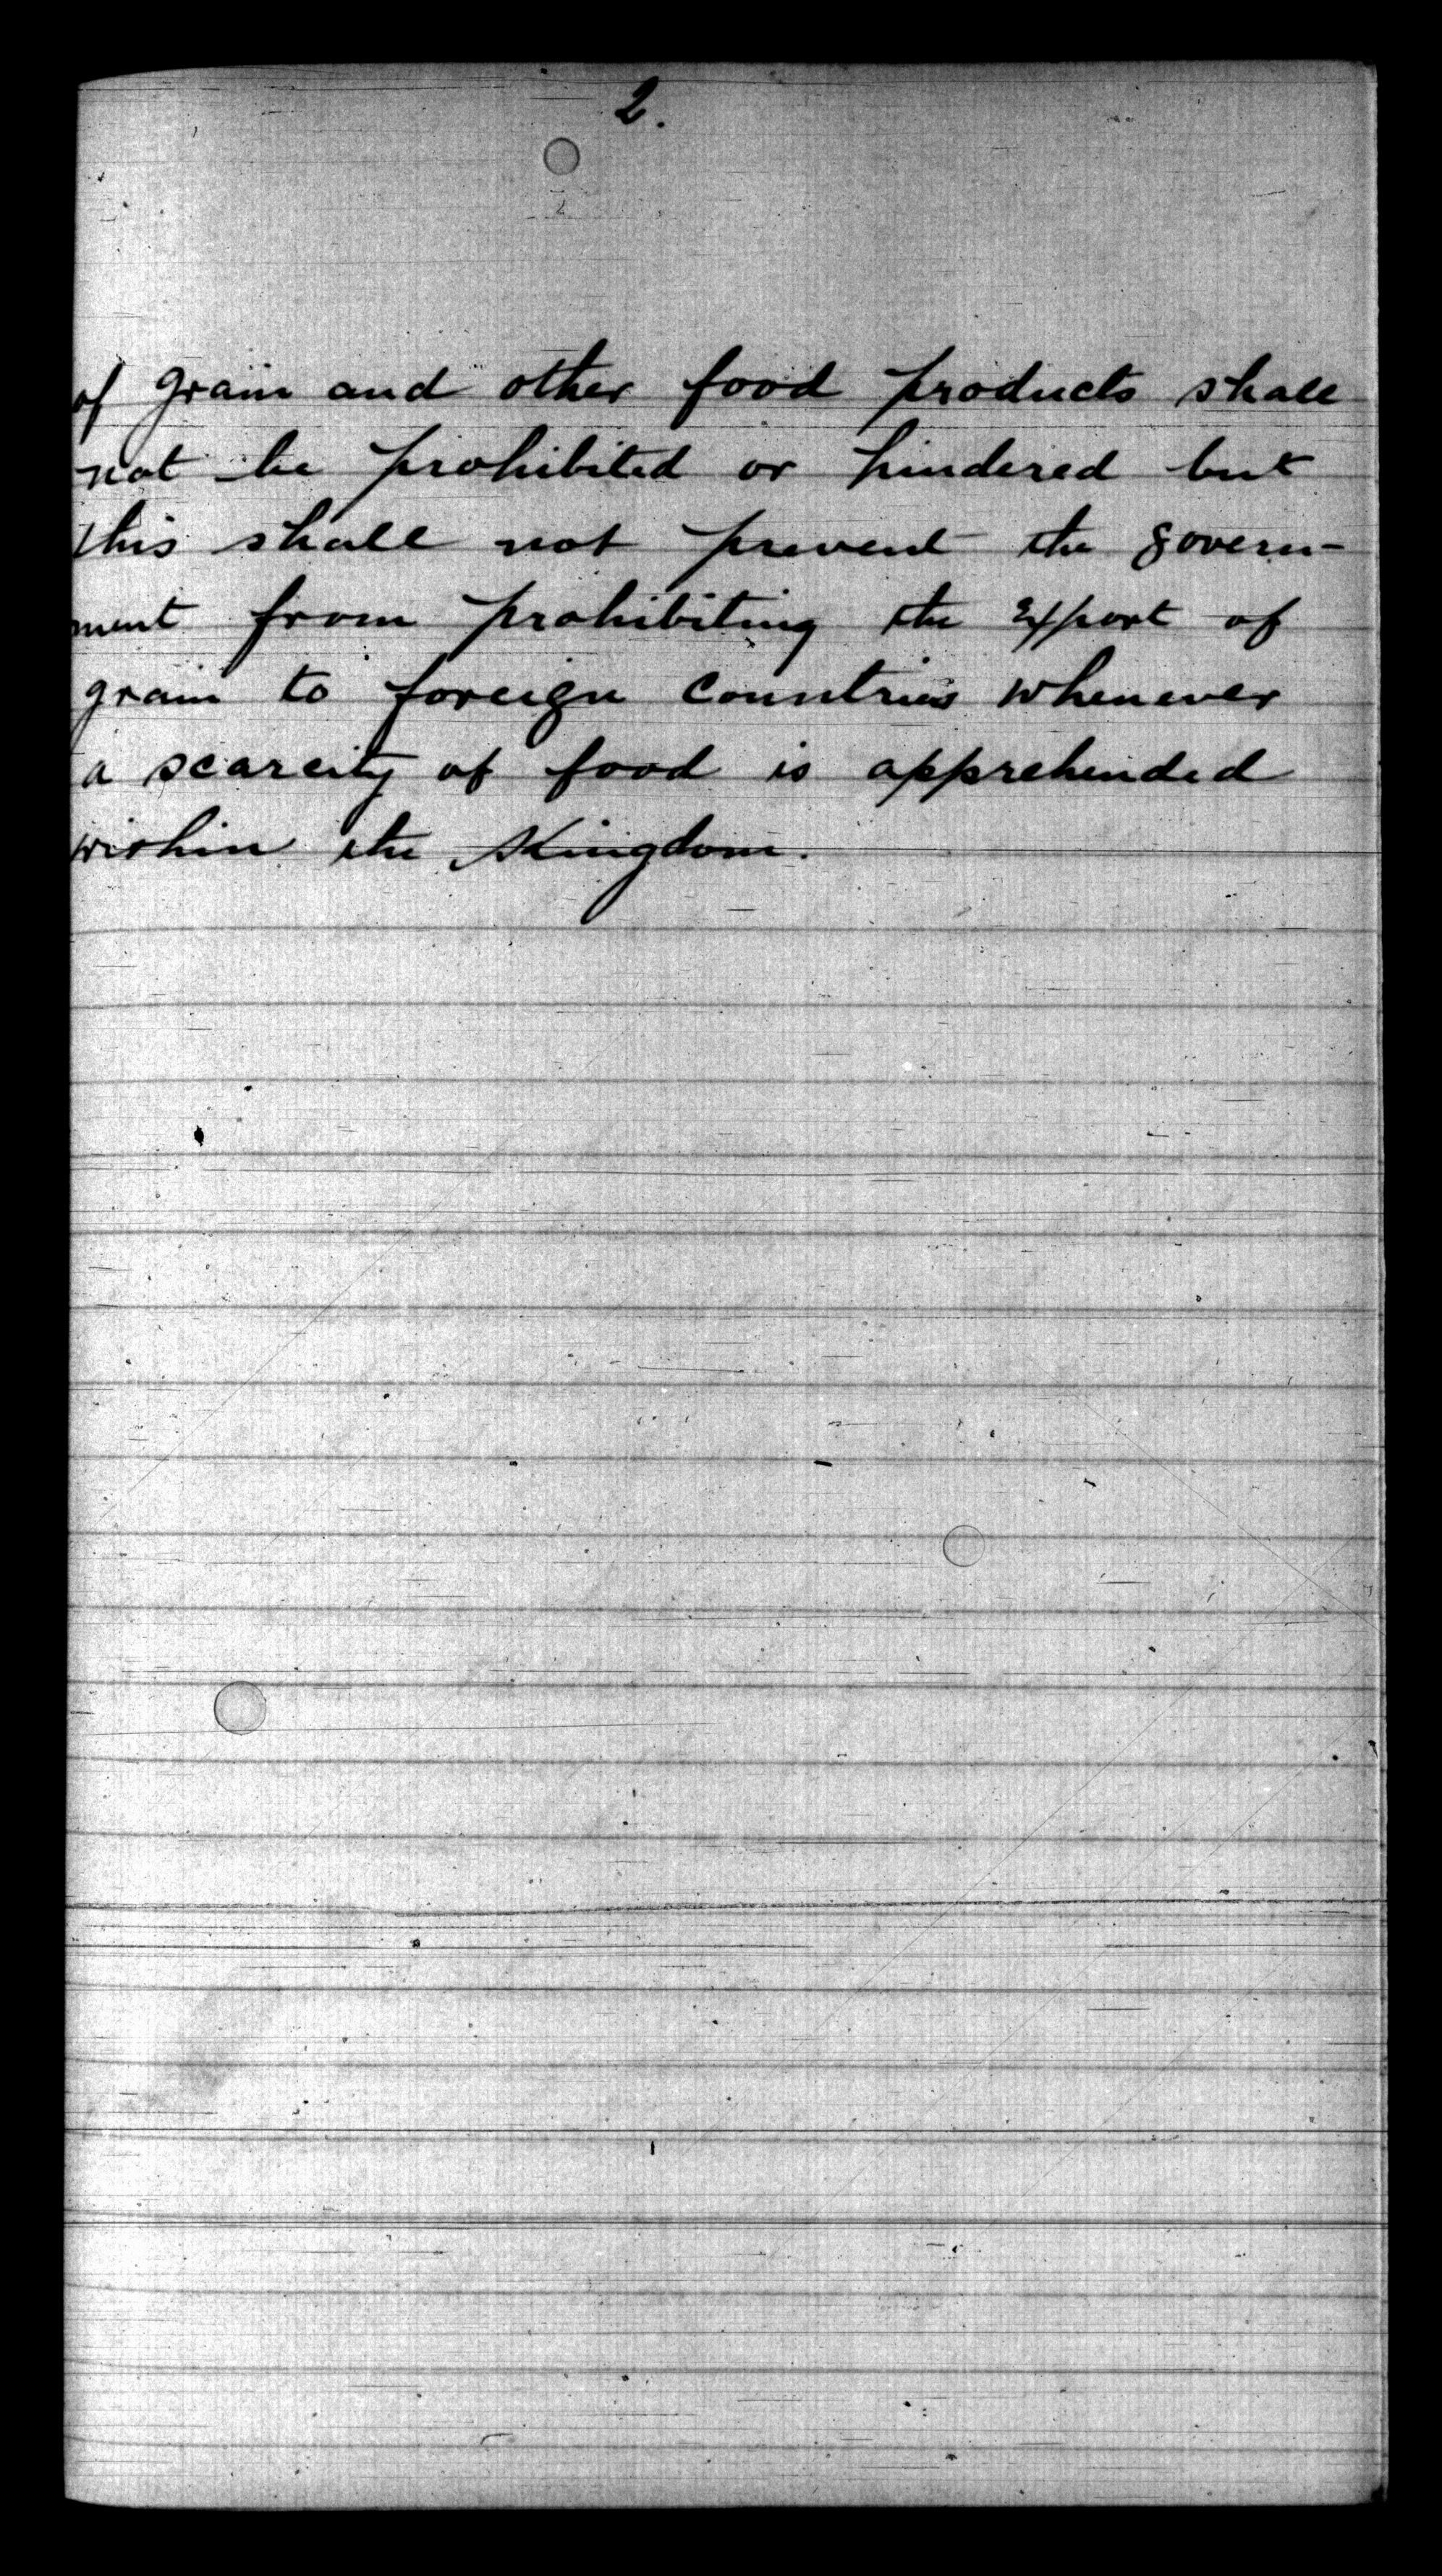 2.
of grain and other food products shall
not be prohibited or hindered but
this shall not prevent the govern-
ment from prohibiting the export of
grain to foreign countries whenever
a scarcity of food is apprehended
within the Kingdom.